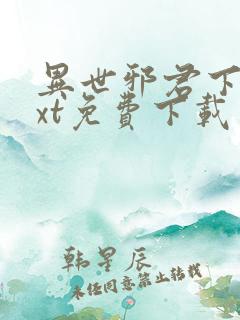 異世邪君下
xt免費下載
韩星辰
未经同意禁止转载